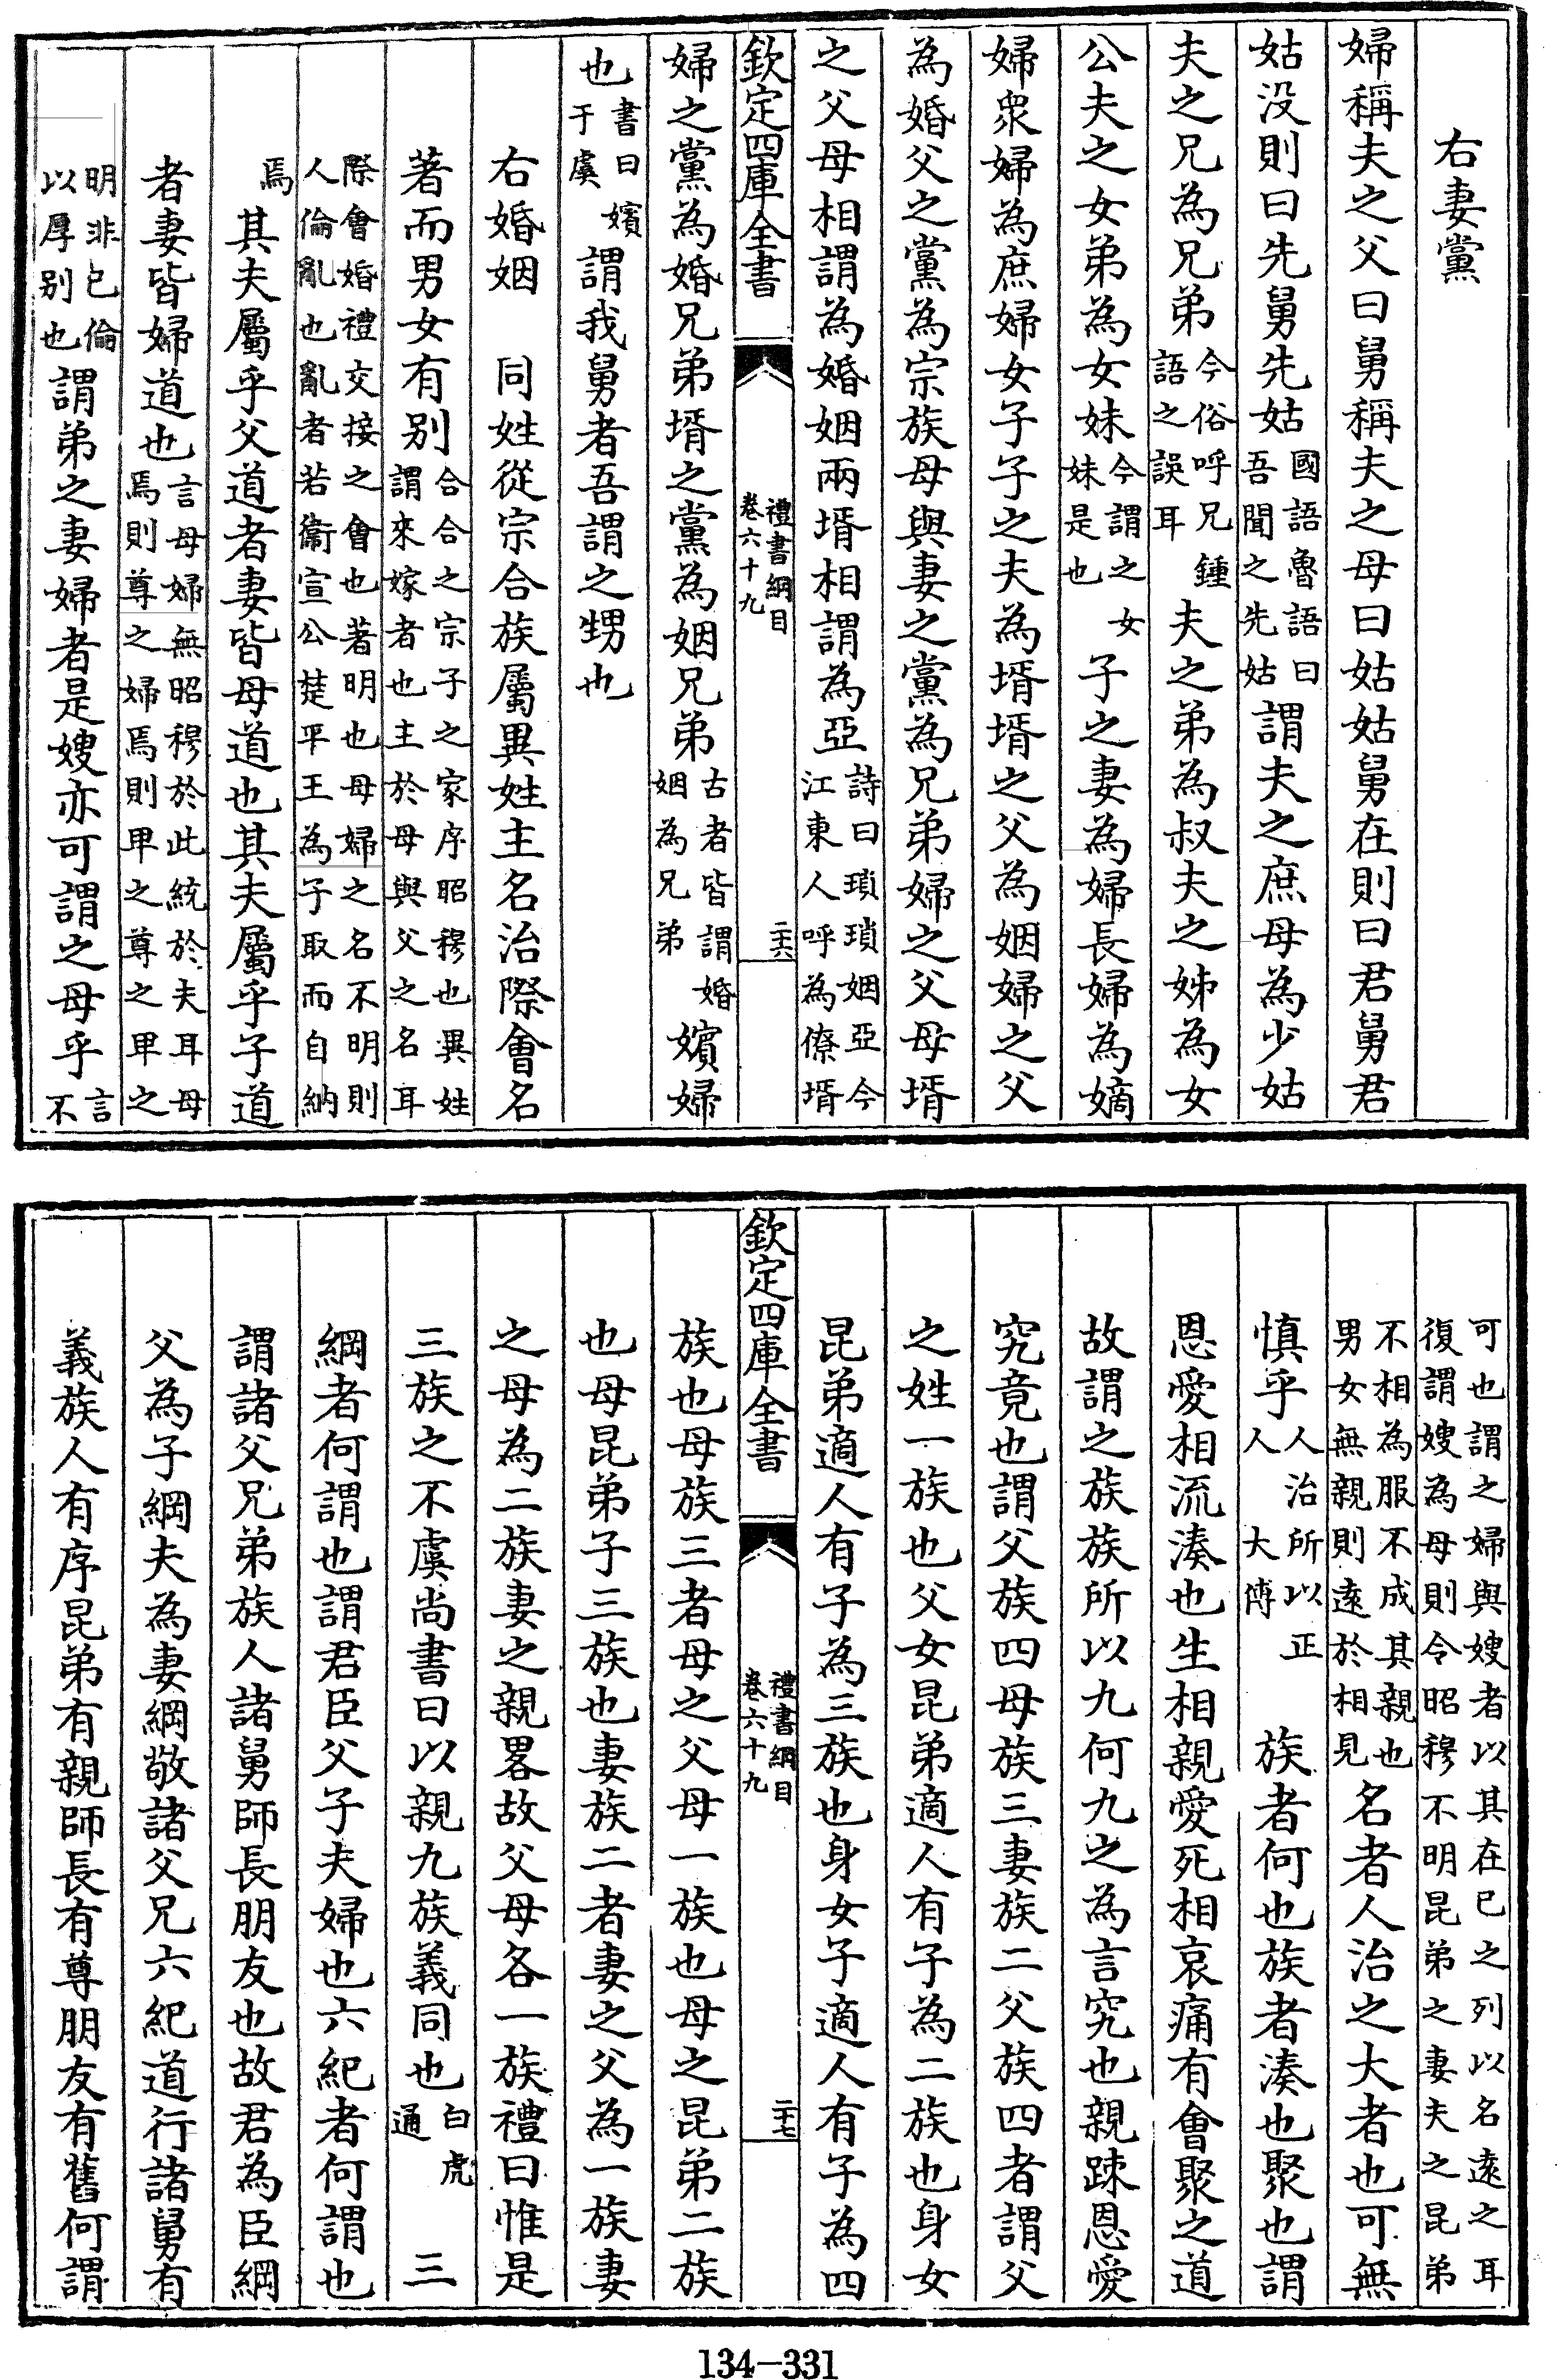 右妻黨
婦稱夫之父曰舅稱夫之母曰姑姑舅在則曰君舅君
姑没則曰先舅先姑國語魯語曰吾聞之先姑謂夫之庶母為少姑
夫之兄為兄弟今俗呼兄鍾語之誤耳夫之弟為叔夫之姊為女
公夫之女弟為女妹今謂之女妹是也子之妻為婦長婦為嫡
婦衆婦為庶婦女子子之夫為壻壻之父為姻婦之父
為婚父之黨為宗族母與妻之黨為兄弟婦之父母壻
之父母相謂為婚姻兩壻相謂為亞詩曰瑣瑣姻亞今江東人呼為僚壻
欽定四庫全書 禮書綱目卷六十九 二十六
婦之黨為婚兄弟壻之黨為姻兄弟古者皆謂婚姻為兄弟嬪婦
也書曰嬪于虞謂我舅者吾謂之甥也
右婚姻 同姓從宗合族屬異姓主名治際會名
著而男女有别合合之宗子之家序昭穆也異姓謂來嫁者也主於母與父之名耳
際會婚禮交接之會也著明也母婦之名不明則人倫亂也亂者若衞宣公楚平王為子取而自納
焉其夫屬乎父道者妻皆母道也其夫屬乎子道
者妻皆婦道也言母婦無昭穆於此統於夫耳母焉則尊之婦焉則卑之尊之卑之
明非已倫以厚别也謂弟之妻婦者是嫂亦可謂之母乎言不
可也謂之婦與嫂者以其在已之列以名遠之耳復謂嫂為母則令昭穆不明昆弟之妻夫之昆弟
不相為服不成其親也男女無親則遠於相見名者人治之大者也可無
慎乎人治所以正人大傅 族者何也族者湊也聚也謂
恩愛相流湊也生相親愛死相哀痛有會聚之道
故謂之族族所以九何九之為言究也親踈恩愛
究竟也謂父族四母族三妻族二父族四者謂父
之姓一族也父女昆弟適人有子為二族也身女
昆弟適人有子為三族也身女子適人有子為四
欽定四庫全書 禮書綱目卷六十九 二十七
族也母族三者母之父母一族也母之昆弟二族
也母昆弟子三族也妻族二者妻之父為一族妻
之母為二族妻之親畧故父母各一族禮曰惟是
三族之不虞尚書曰以親九族義同也白虎通 三
綱者何謂也謂君臣父子夫婦也六紀者何謂也
謂諸父兄弟族人諸舅師長朋友也故君為臣綱
父為子綱夫為妻綱敬諸父兄六紀道行諸舅有
義族人有序昆弟有親師長有尊朋友有舊何謂
134-331